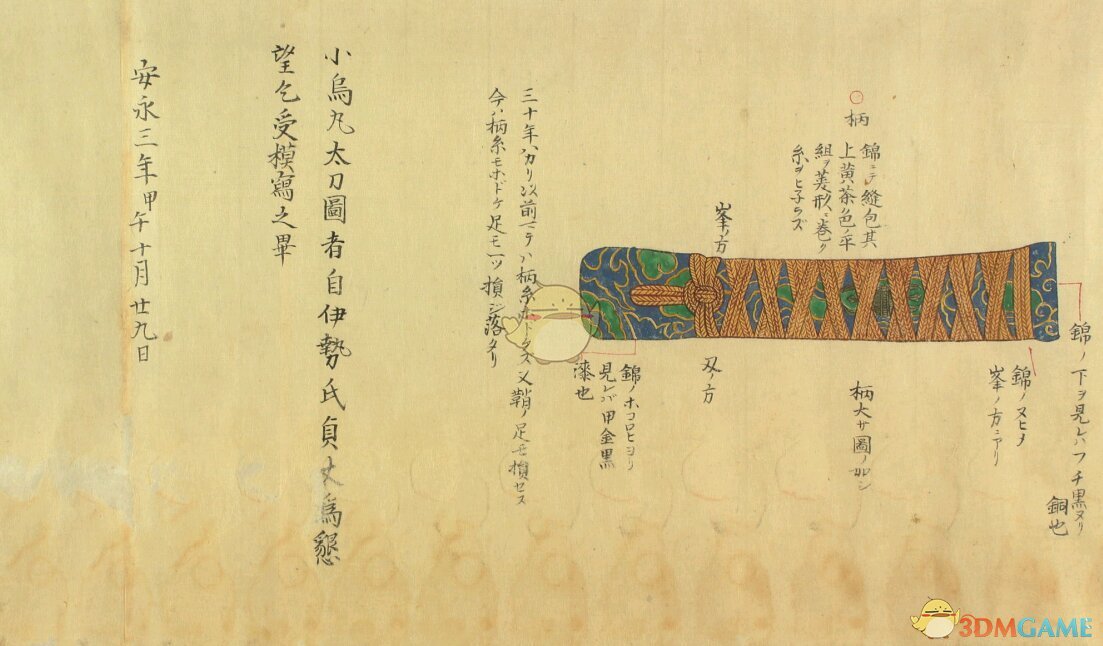 錦ノ下ヲ見レハフチ黒ヌリ
銅也
錦ノヌヒメ
峯ノ方ニアリ
○
柄
錦ニテ縫包其
上黄茶色ノ平
組ヲ菱形ニ巻ク
糸ヲヒネラズ
柄大サ圖ノ如シ
峯ノ方
刃ノ方
錦ノホコロヒヨリ
見レバ甲金黒
漆也
三十年ハカリ以前マテハ柄糸モホドケズ又鞘ノ足モ損セス
今ハ柄糸モホドケ足モ一ツ損ジ落タリ
小烏丸太刀圖者自伊勢氏貞丈為懇
望乞受模寫之畢
安永三年甲午十月廿九日
3DMGAME